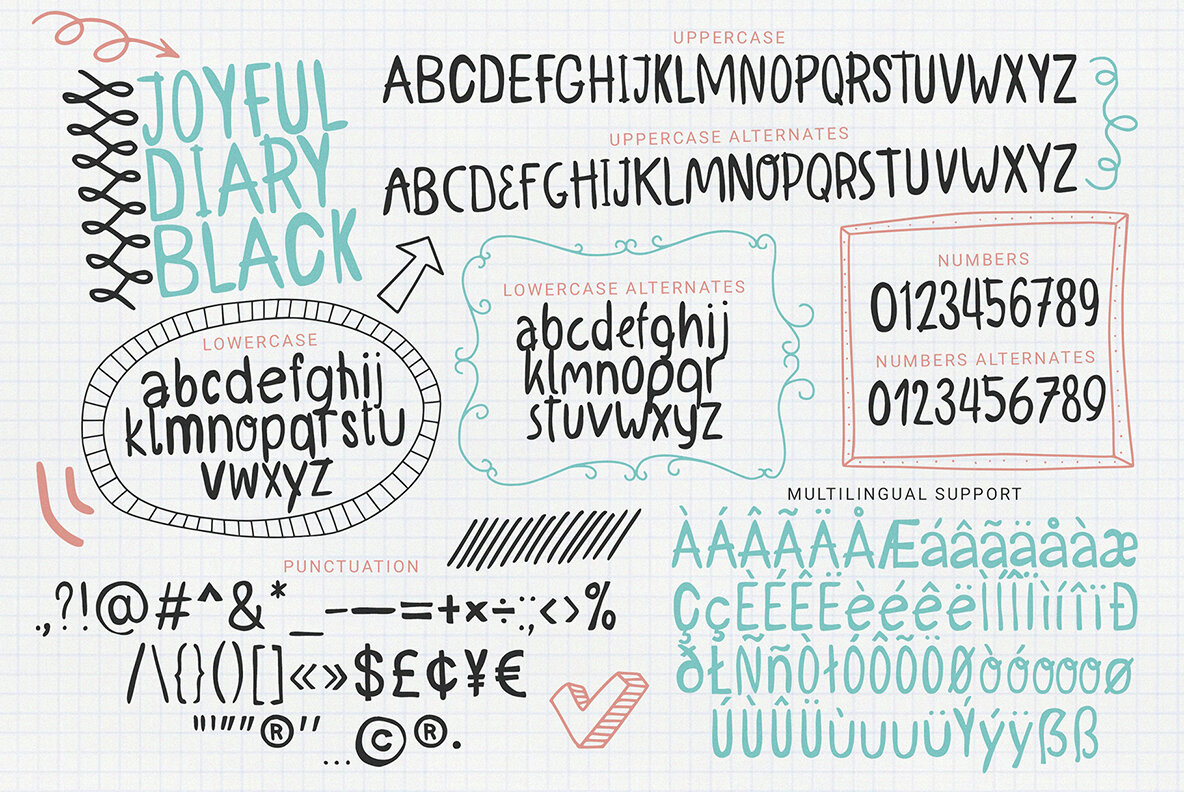 JOYFUL
DIARY
BLACK
UPPERCASE
ABCDEFGHIJKLMNOPQRSTUVWXYZ
UPPERCASE ALTERNATES
ABCDEFGHIJKLMNOPQRSTUVWXYZ
LOWERCASE
abcdefghij
klmnopqrstu
vwxyz
LOWERCASE ALTERNATES
abcdefghij
klmnopqr
stuvwxyz
NUMBERS
0123456789
NUMBERS ALTERNATES
0123456789
PUNCTUATION
.,?!@#^&*_-—=+×÷:;<>%
/\{}()[]«»$£¢¥€
"'"""®'' ...©®.
MULTILINGUAL SUPPORT
ÀÁÂÃÄÅÆáâãäåàæ
ÇçÈÉÊËèéêëÌÍÎÏìíîïÐ
ðŁÑñÒłÓÔÕÖØòóôõöø
ÚÙÛÜùúûüÝýÿßß